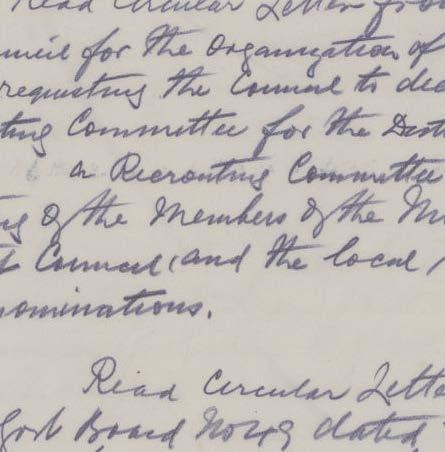 Read Circular Letter from
uncil for the Organization of
requesting the Council to dec
ting Committee for the Distr
a Recruiting Committee
ng of the Members of the Mu
Council, and the local
nominations.
Read Circular Lette
Govt Board No 49 dated